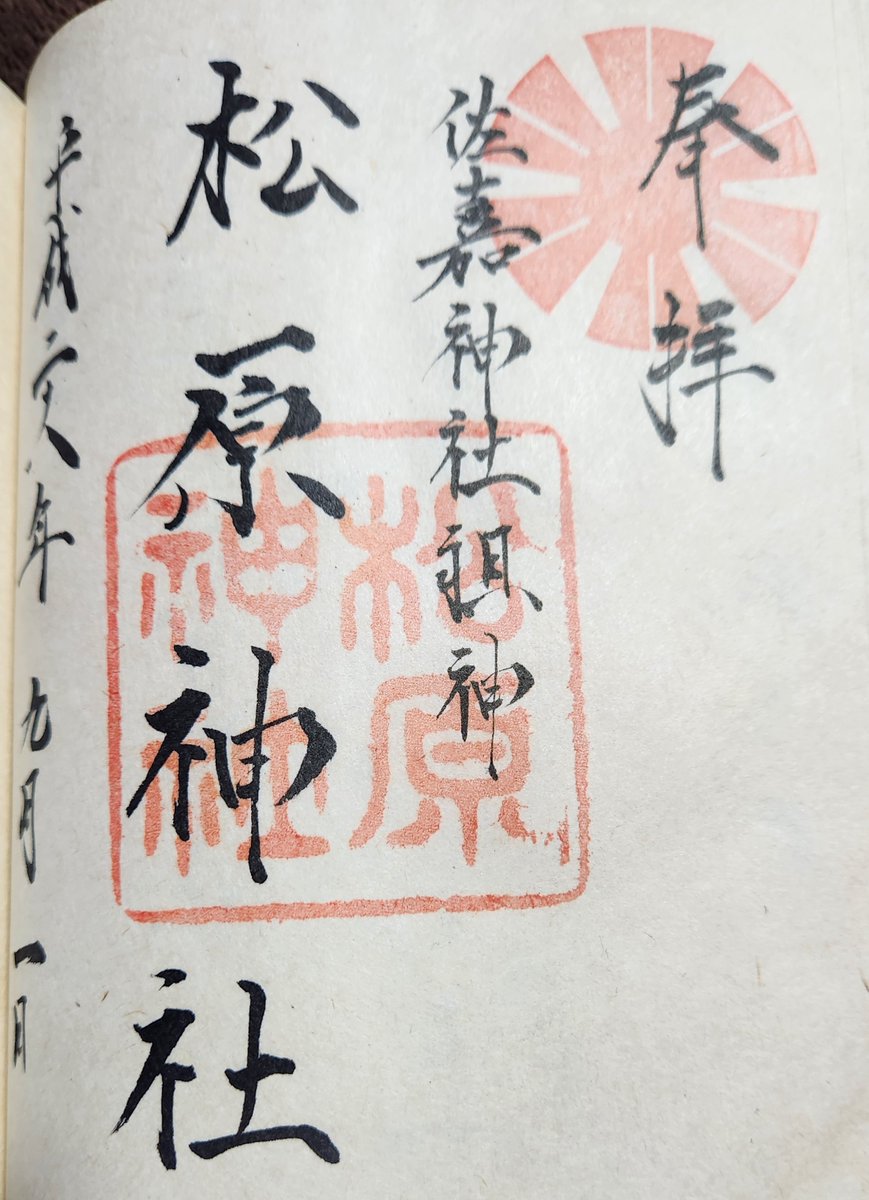 奉拝
佐嘉神社祖神
松原神社
平成二十八年九月一日
松原
神社